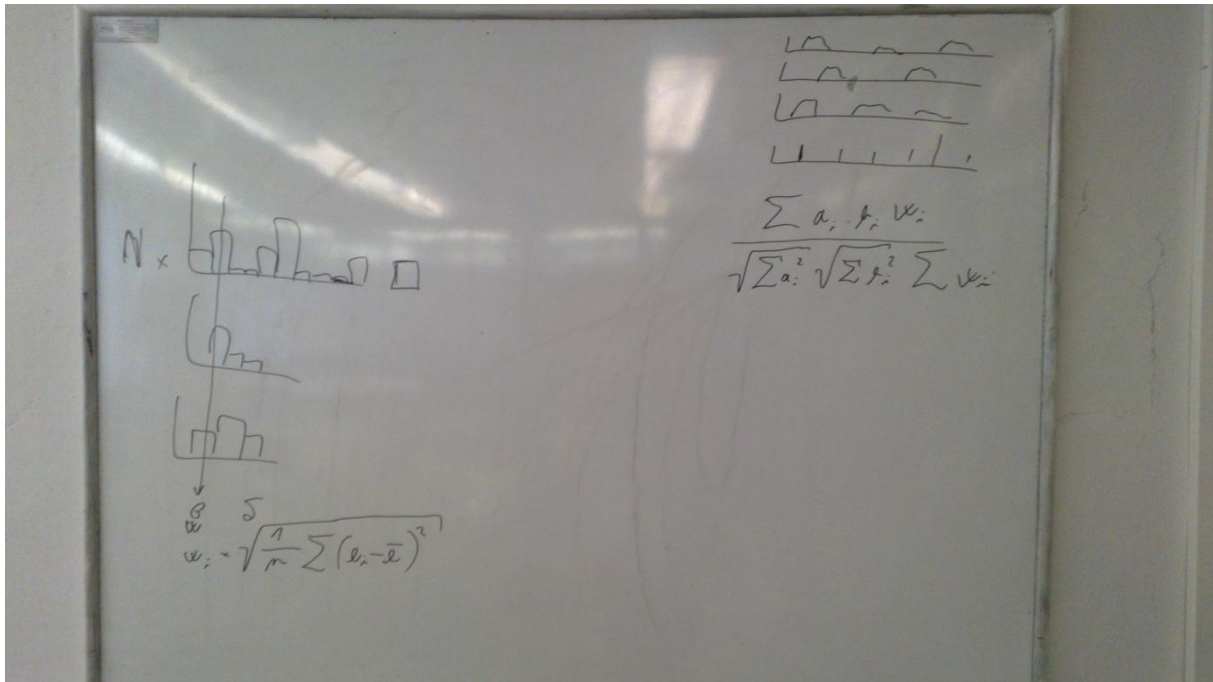 N x
w_i = √(1/n ∑ (l_i - l̄)²)
∑ a_i · b_i w_i
√(∑ a_i²) √(∑ b_i²) ∑ w_i